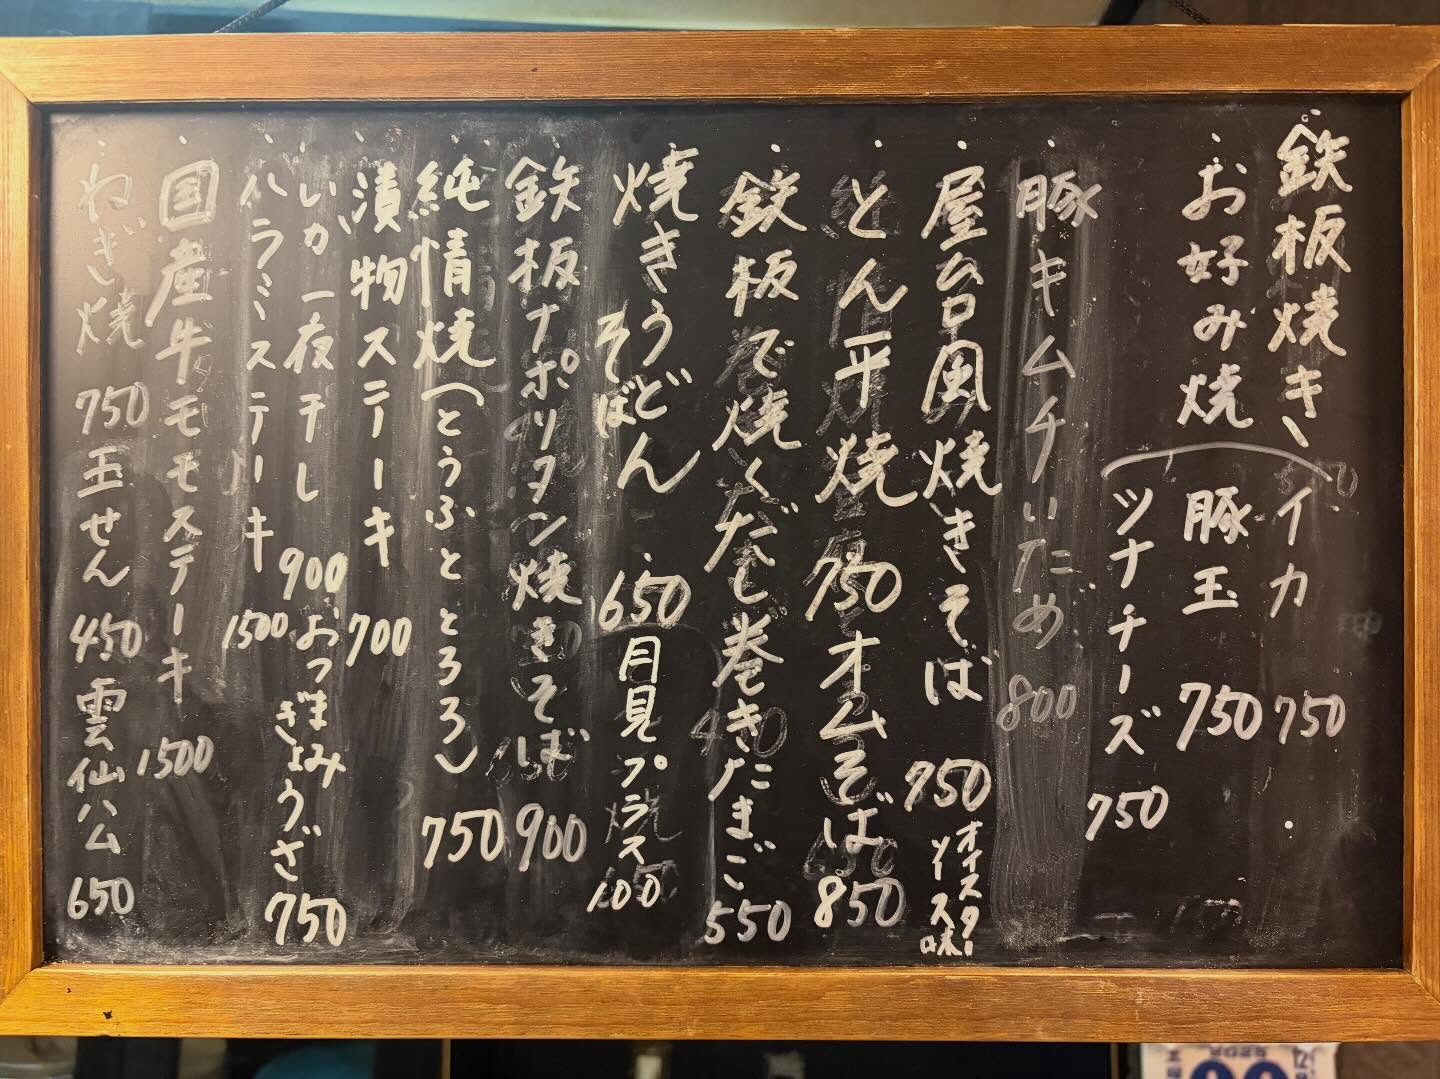 鉄板焼き
お好み焼
イカ 750
豚玉 750
ツナチーズ 750
豚キムチいため 800
屋台風焼きそば 750
オイスターソース味
とん平焼 750 オムそば 850
鉄板で焼くだし巻きたまご 550
焼きうどん
そば
650 月見プラス 100
鉄板ナポリタン焼きそば 900
純情焼(とうふととろろ) 750
漬物ステーキ 700
いか一夜干し 900 おつまみ
ぎょうざ 750
ハラミステーキ 1500
国産牛モモステーキ 1500
ねぎ焼 750 玉せん 450 雲仙ハム 650